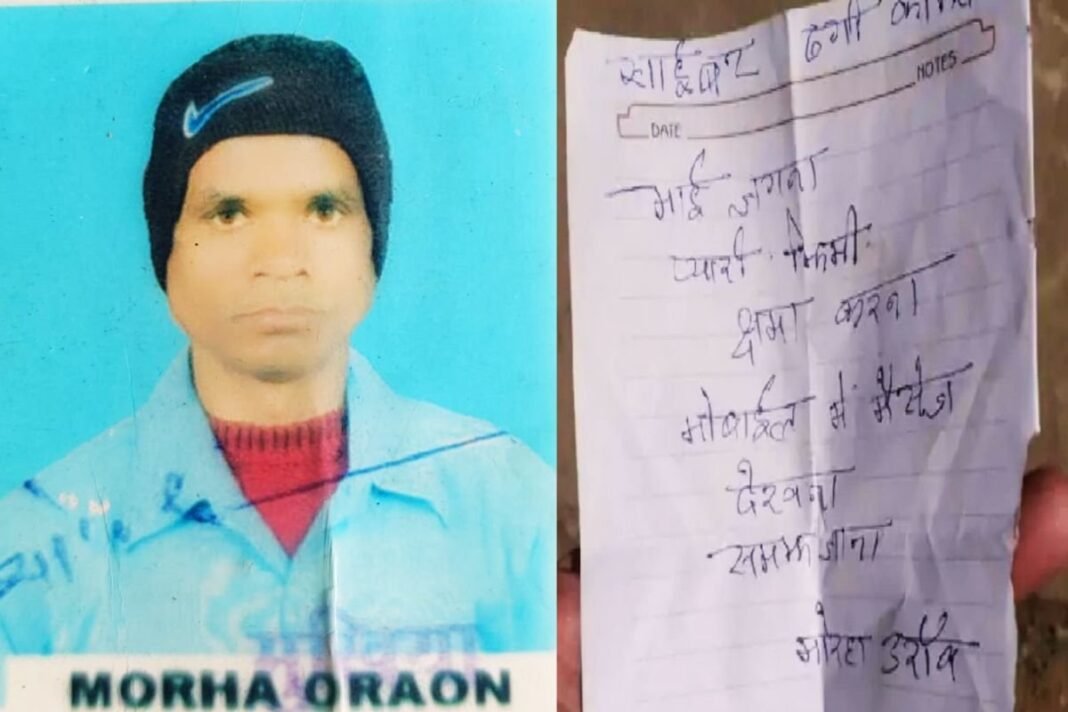 MORHA ORAON
साईबर ठगी
DATE
NOTES
भाई जगना
प्यारी
क्षमा करना
मोबाईल में मैसेज
देखना
समझ जाना
मोरहा उराँव